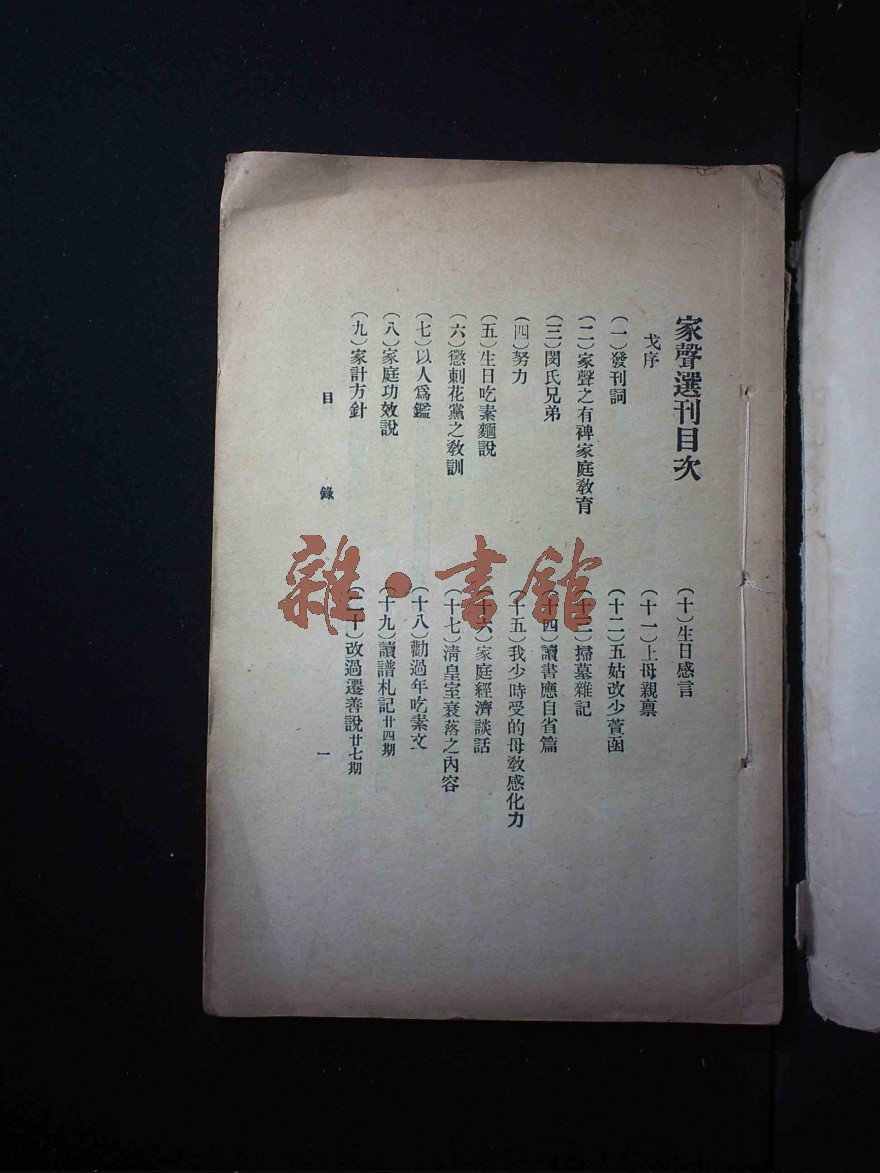 家聲選刊目次
戈序
（一）發刊詞
（二）家聲之有裨家庭教育
（三）閔氏兄弟
（四）努力
（五）生日吃素麵說
（六）懲刺花黨之教訓
（七）以人爲鑑
（八）家庭功效說
（九）家計方針
（十）生日感言
（十一）上母親禀
（十二）五姑改少萱函
（十三）掃墓雜記
（十四）讀書應自省篇
（十五）我少時受的母教感化力
（十六）家庭經濟談話
（十七）清皇室衰落之內容
（十八）勸過年吃素文
（十九）讀譜札記廿四期
（二十）改過遷善說廿七期
目錄 一
雜·書館